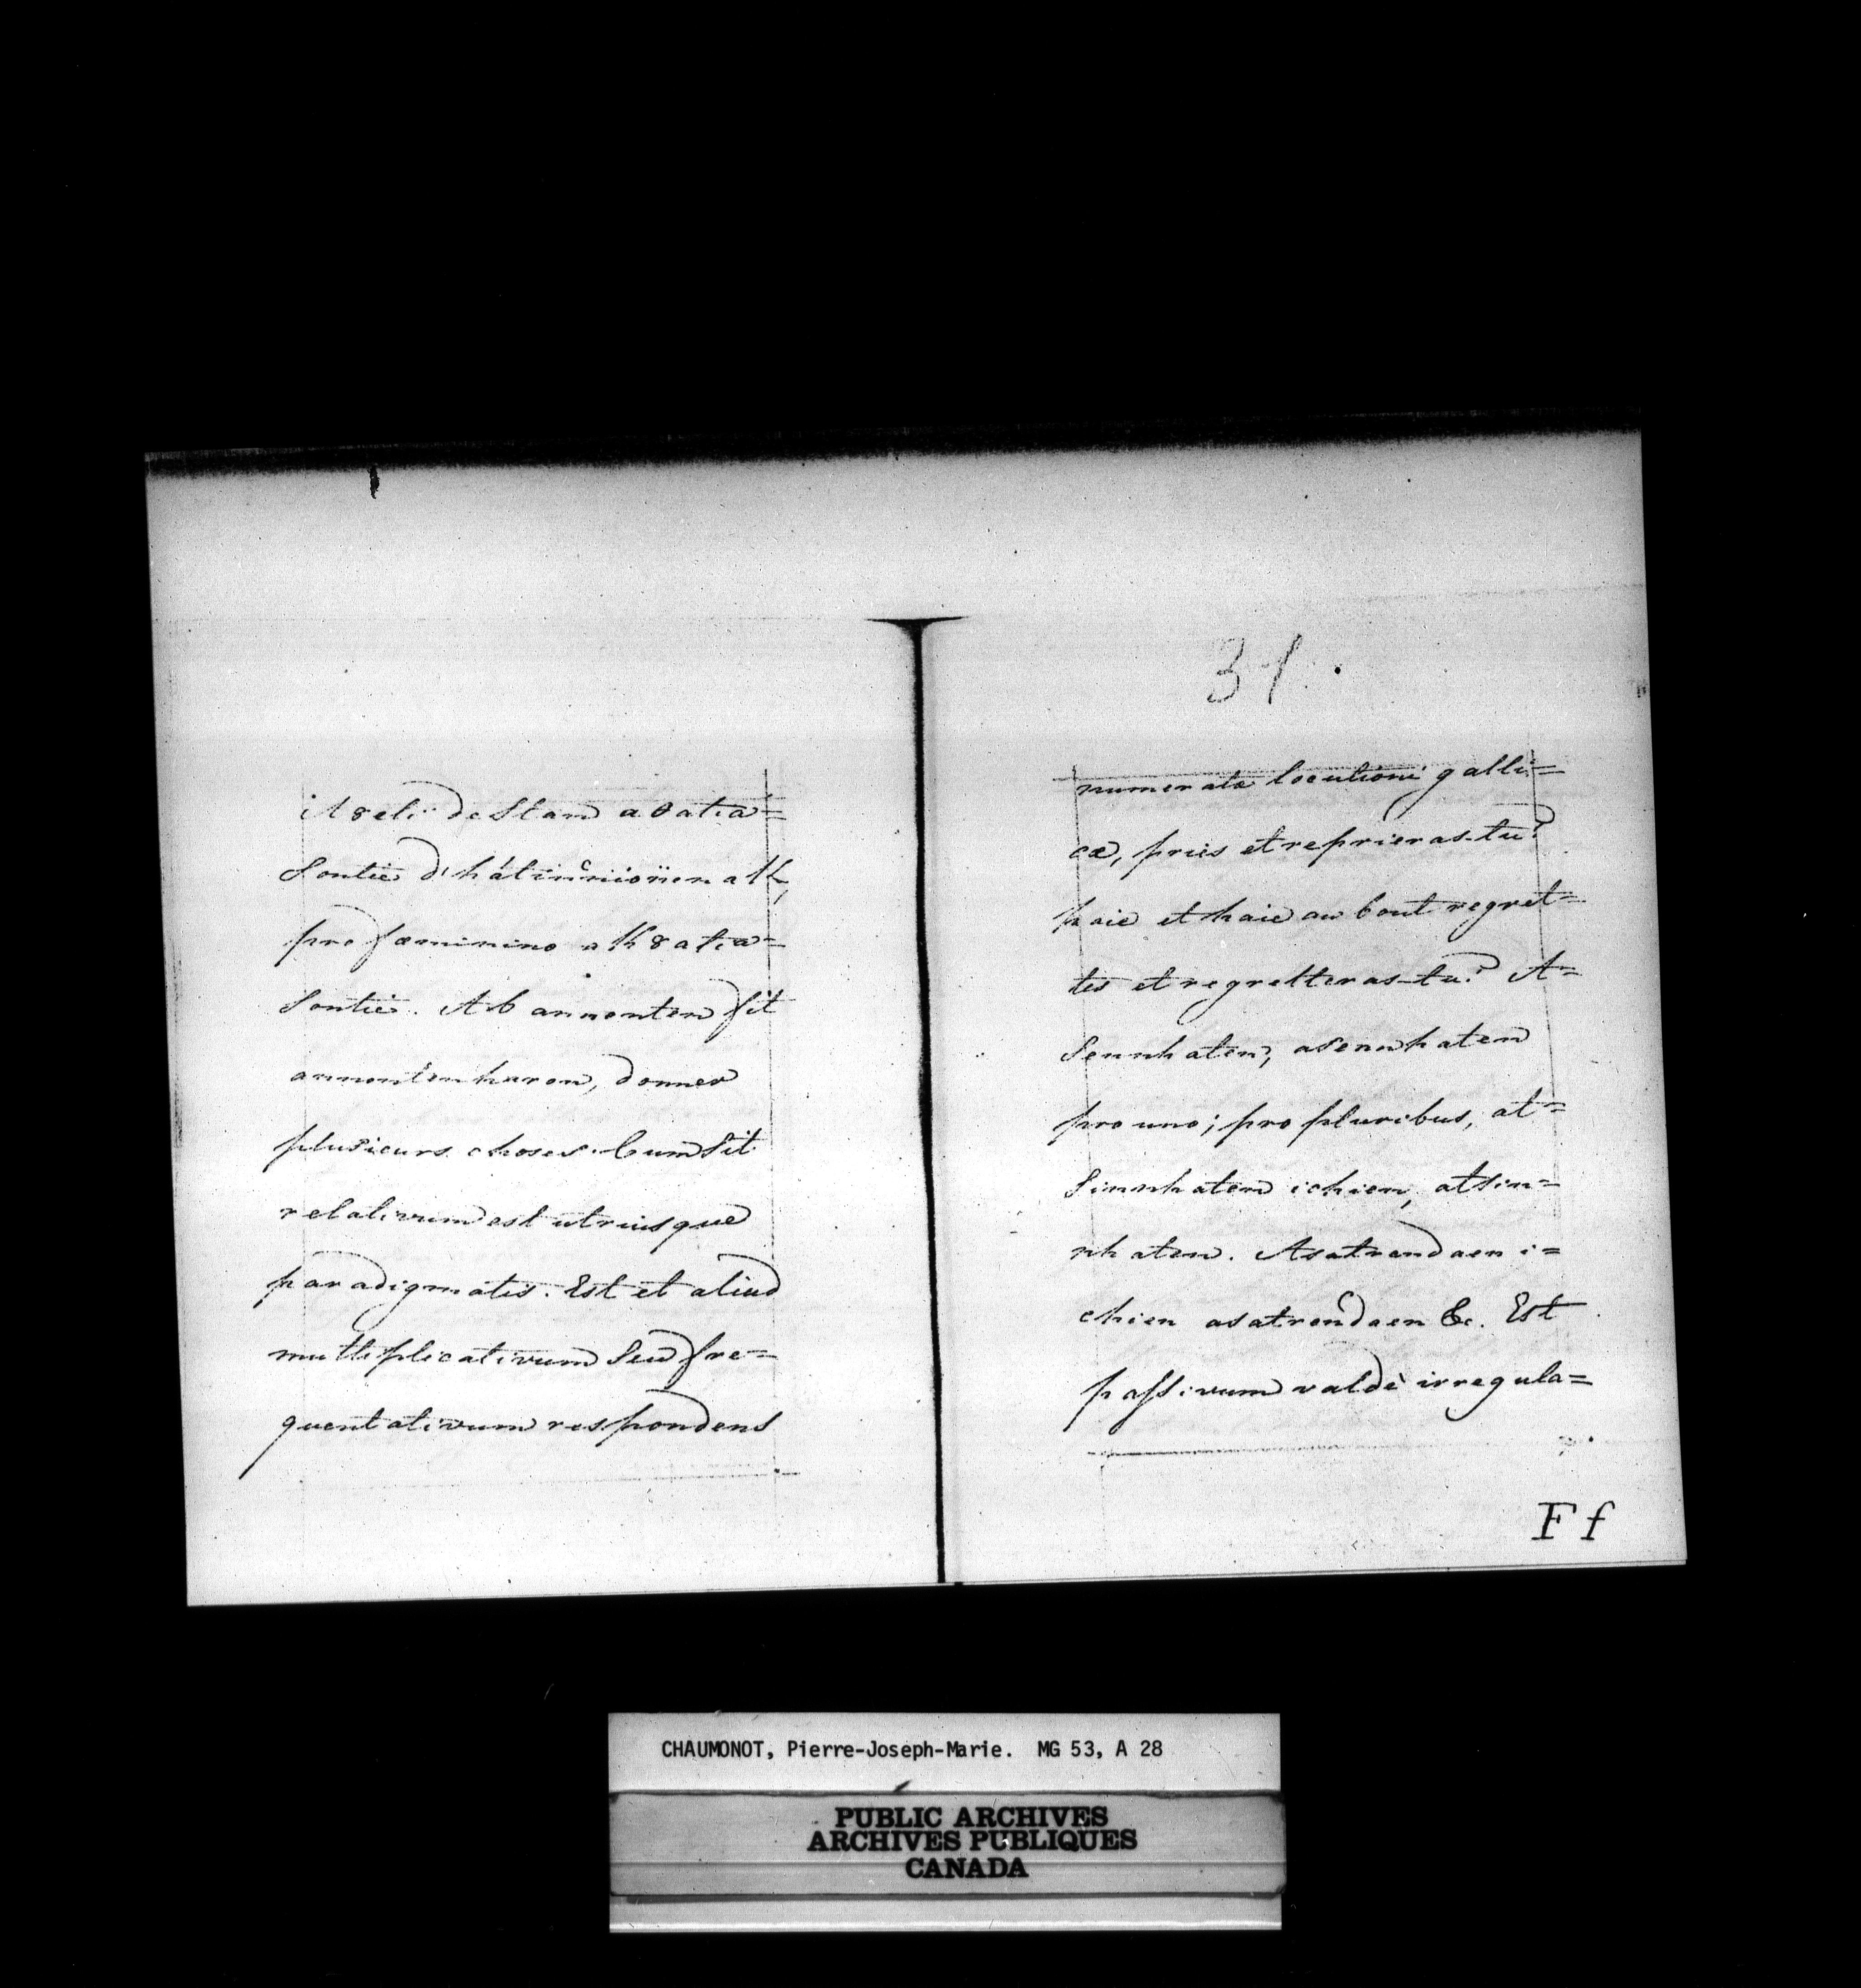 it8eti de stan a8atia=
sontie d'hátinnionnen ak,
pro fœminino ak8atia=
sontie. Ab annonten fit
annontenharon, donner
plusieurs choses. Cum sit
relativum est utriusque
paradigmatis. Est et aliud
multiplicativum seu fre=
quentativum respondens
31.
numerata locutioni galli=
cæ, pries et reprieras-tu?
haie et haie au bout regret=
tes et regretteras-tu? A=
sennhaten, asennhaten
pro uno; pro pluribus, at=
sinnhaten ichien, atsin=
nhaten. Asatrendaen i=
chien asatrendaen &c. Est
passivum valdè irregula=
Ff
CHAUMONOT, Pierre-Joseph-Marie. MG 53, A 28
PUBLIC ARCHIVES
ARCHIVES PUBLIQUES
CANADA